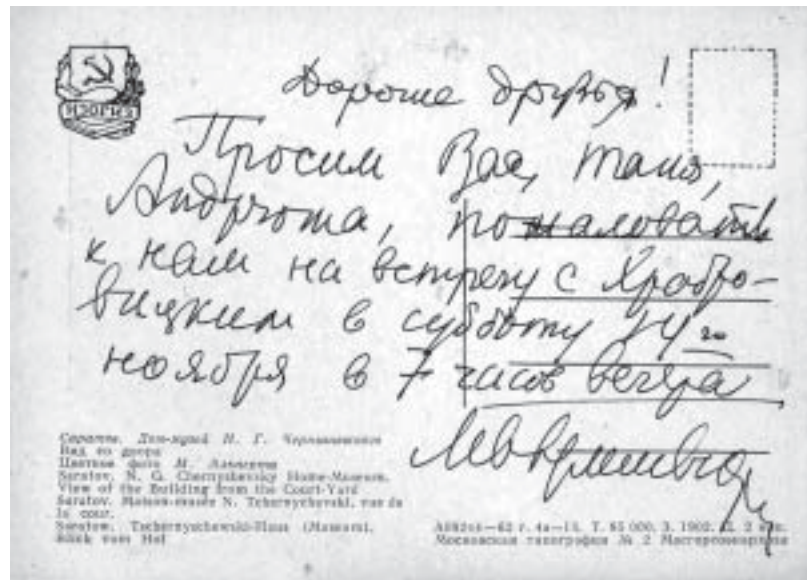 ИЗОГИЗ
Дорогие друзья!
Просим Вас, Таня,
Андрюша, пожаловать
к нам на встречу с Храбро-
вицким в субботу 14го
ноября в 7 часов вечера
Саратов. Дом-музей Н. Г. Чернышевского
Вид со двора
Цветное фото М.
Saratov. N. G. Chernyshevsky Home-Museum.
View of the Building from the Court-Yard
Saratov. Maison-musée N. Tchernychevski, vue de
la cour.
Saratow. Tschernyschewski-Haus (Museum).
Blick vom Hof
62 г. 4а—15. Т. 85 000. З. 1902. Ц. 2 коп.
Московская типография № 2